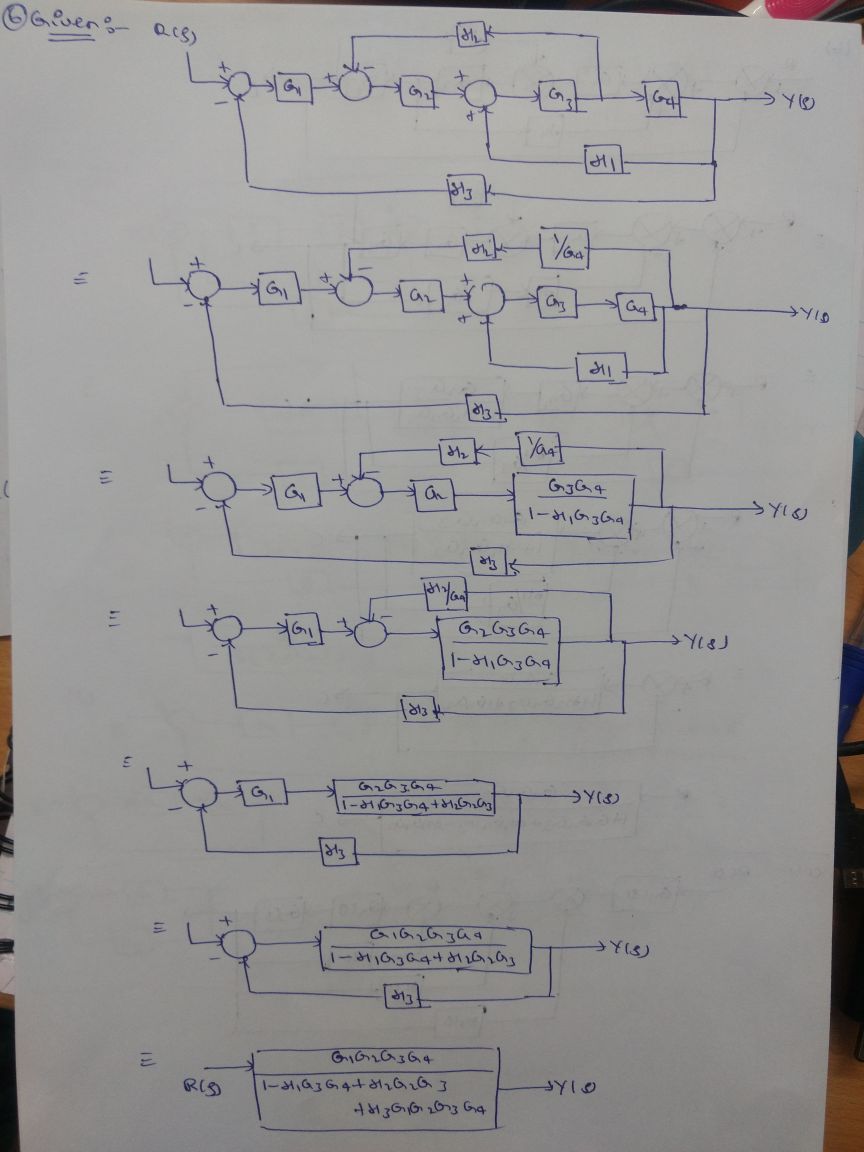 ⑥ Given:- R(s)
H2
+ - + G1 + - G2 + + G3 G4 Y(s)
H1
H3
≡ H2 1/G4
+ - G1 + - G2 + + G3 G4 Y(s)
H1
H3
≡ H2 1/G4
+ - G1 + - G2 G3G4 / 1-H1G3G4 Y(s)
H3
≡ H2/G4
+ - G1 + - G2G3G4 / 1-H1G3G4 Y(s)
H3
≡ + - G1 G2G3G4 / 1-H1G3G4+H2G2G3 Y(s)
H3
≡ + - G1G2G3G4 / 1-H1G3G4+H2G2G3 Y(s)
H3
≡ G1G2G3G4
R(s) 1-H1G3G4+H2G2G3 Y(s)
+H3G1G2G3G4